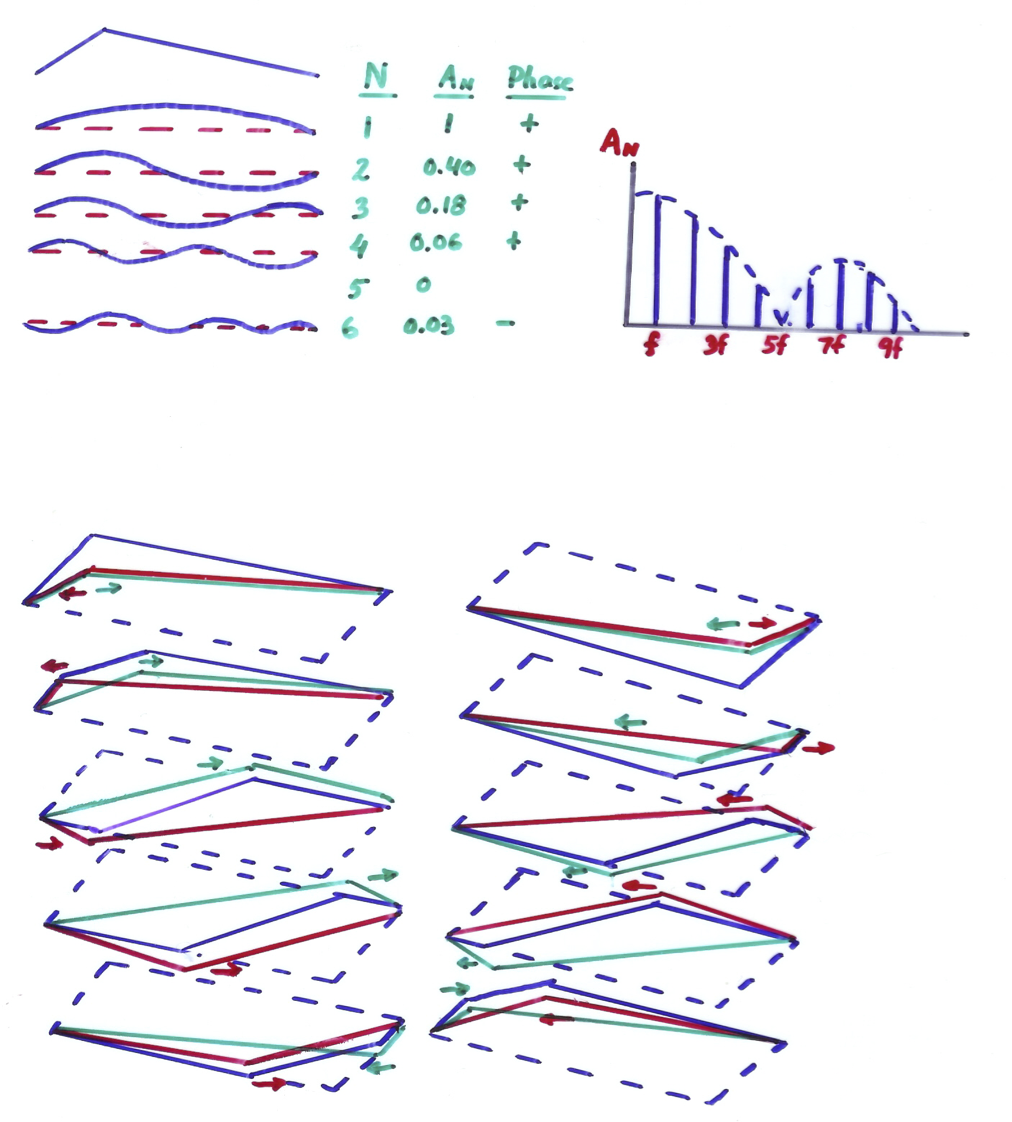 N AN Phase
1 1 +
2 0.40 +
3 0.18 +
4 0.06 +
5 0
6 0.03 -
AN
f 3f 5f 7f 9f